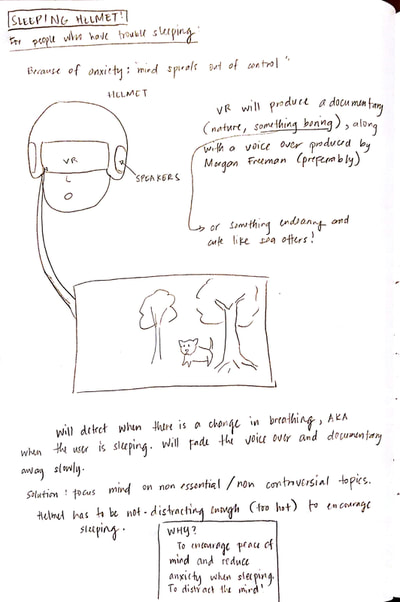 SLEEPING HELMET!
For people who have trouble sleeping
Because of anxiety: "mind spirals out of control"
HELMET
VR will produce a documentary
(nature, something boring), along
with a voice over produced by
Morgan Freeman (preferably)
VR
SPEAKERS
or something endearing and
cute like sea otters!
Will detect when there is a change in breathing, AKA
when the user is sleeping. Will fade the voice over and documentary
away slowly.
Solution: focus mind on non essential/non controversial topics.
Helmet has to be not-distracting enough (too hot) to encourage
sleeping.
WHY?
To encourage peace of
mind and reduce
anxiety when sleeping.
To distract the mind'